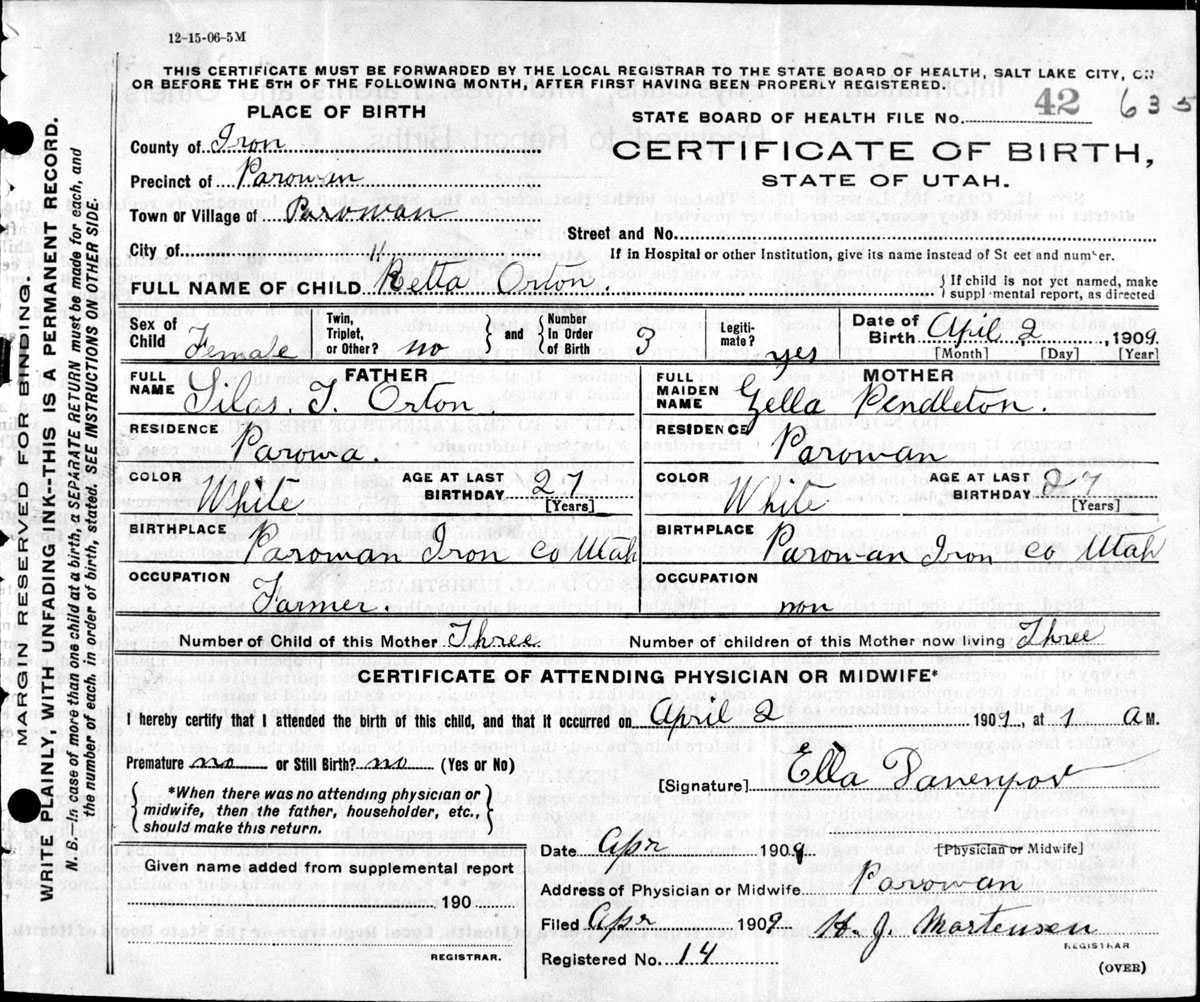 12-15-06-5M
THIS CERTIFICATE MUST BE FORWARDED BY THE LOCAL REGISTRAR TO THE STATE BOARD OF HEALTH, SALT LAKE CITY, ON
OR BEFORE THE 5TH OF THE FOLLOWING MONTH, AFTER FIRST HAVING BEEN PROPERLY REGISTERED.
PLACE OF BIRTH
STATE BOARD OF HEALTH FILE No. 42 635
County of Iron
CERTIFICATE OF BIRTH,
Precinct of Parowan
STATE OF UTAH.
Town or Village of Parowan
Street and No.
City of "
If in Hospital or other Institution, give its name instead of St eet and number.
FULL NAME OF CHILD Retta Orton. } If child is not yet named, make
suppl mental report, as directed
Sex of Child Female
Twin, Triplet, or Other? no } and { Number In Order of Birth 3
Legiti- mate? yes
Date of Birth April 2, 1909
[Month] [Day] [Year]
FATHER
FULL NAME Silas. T. Orton.
MOTHER
FULL MAIDEN NAME Zella Pendleton.
RESIDENCE Parowa.
RESIDENCE Parowan
COLOR White AGE AT LAST BIRTHDAY 27 [Years]
COLOR White AGE AT LAST BIRTHDAY 27 [Years]
BIRTHPLACE Parowan Iron co Utah
BIRTHPLACE Parowan Iron co Utah
OCCUPATION Farmer.
OCCUPATION non
Number of Child of this Mother Three
Number of children of this Mother now living Three
CERTIFICATE OF ATTENDING PHYSICIAN OR MIDWIFE*
I hereby certify that I attended the birth of this child, and that it occurred on April 2 1909, at 1 a M.
Premature no or Still Birth? no (Yes or No)
[Signature] Ella Davenpor
{ *When there was no attending physician or
midwife, then the father, householder, etc.,
should make this return. }
Date Apr 1909. [Physician or Midwife]
Given name added from supplemental report
190
REGISTRAR.
Address of Physician or Midwife. Parowan
Filed Apr 1909 H. J. Mortensen
REGISTRAR
Registered No. 14
(OVER)
MARGIN RESERVED FOR BINDING.
WRITE PLAINLY, WITH UNFADING INK--THIS IS A PERMANENT RECORD.
N. B. In case of more than one child at a birth, a SEPARATE RETURN must be made for each, and
the number of each, in order of birth, stated. SEE INSTRUCTIONS ON OTHER SIDE.